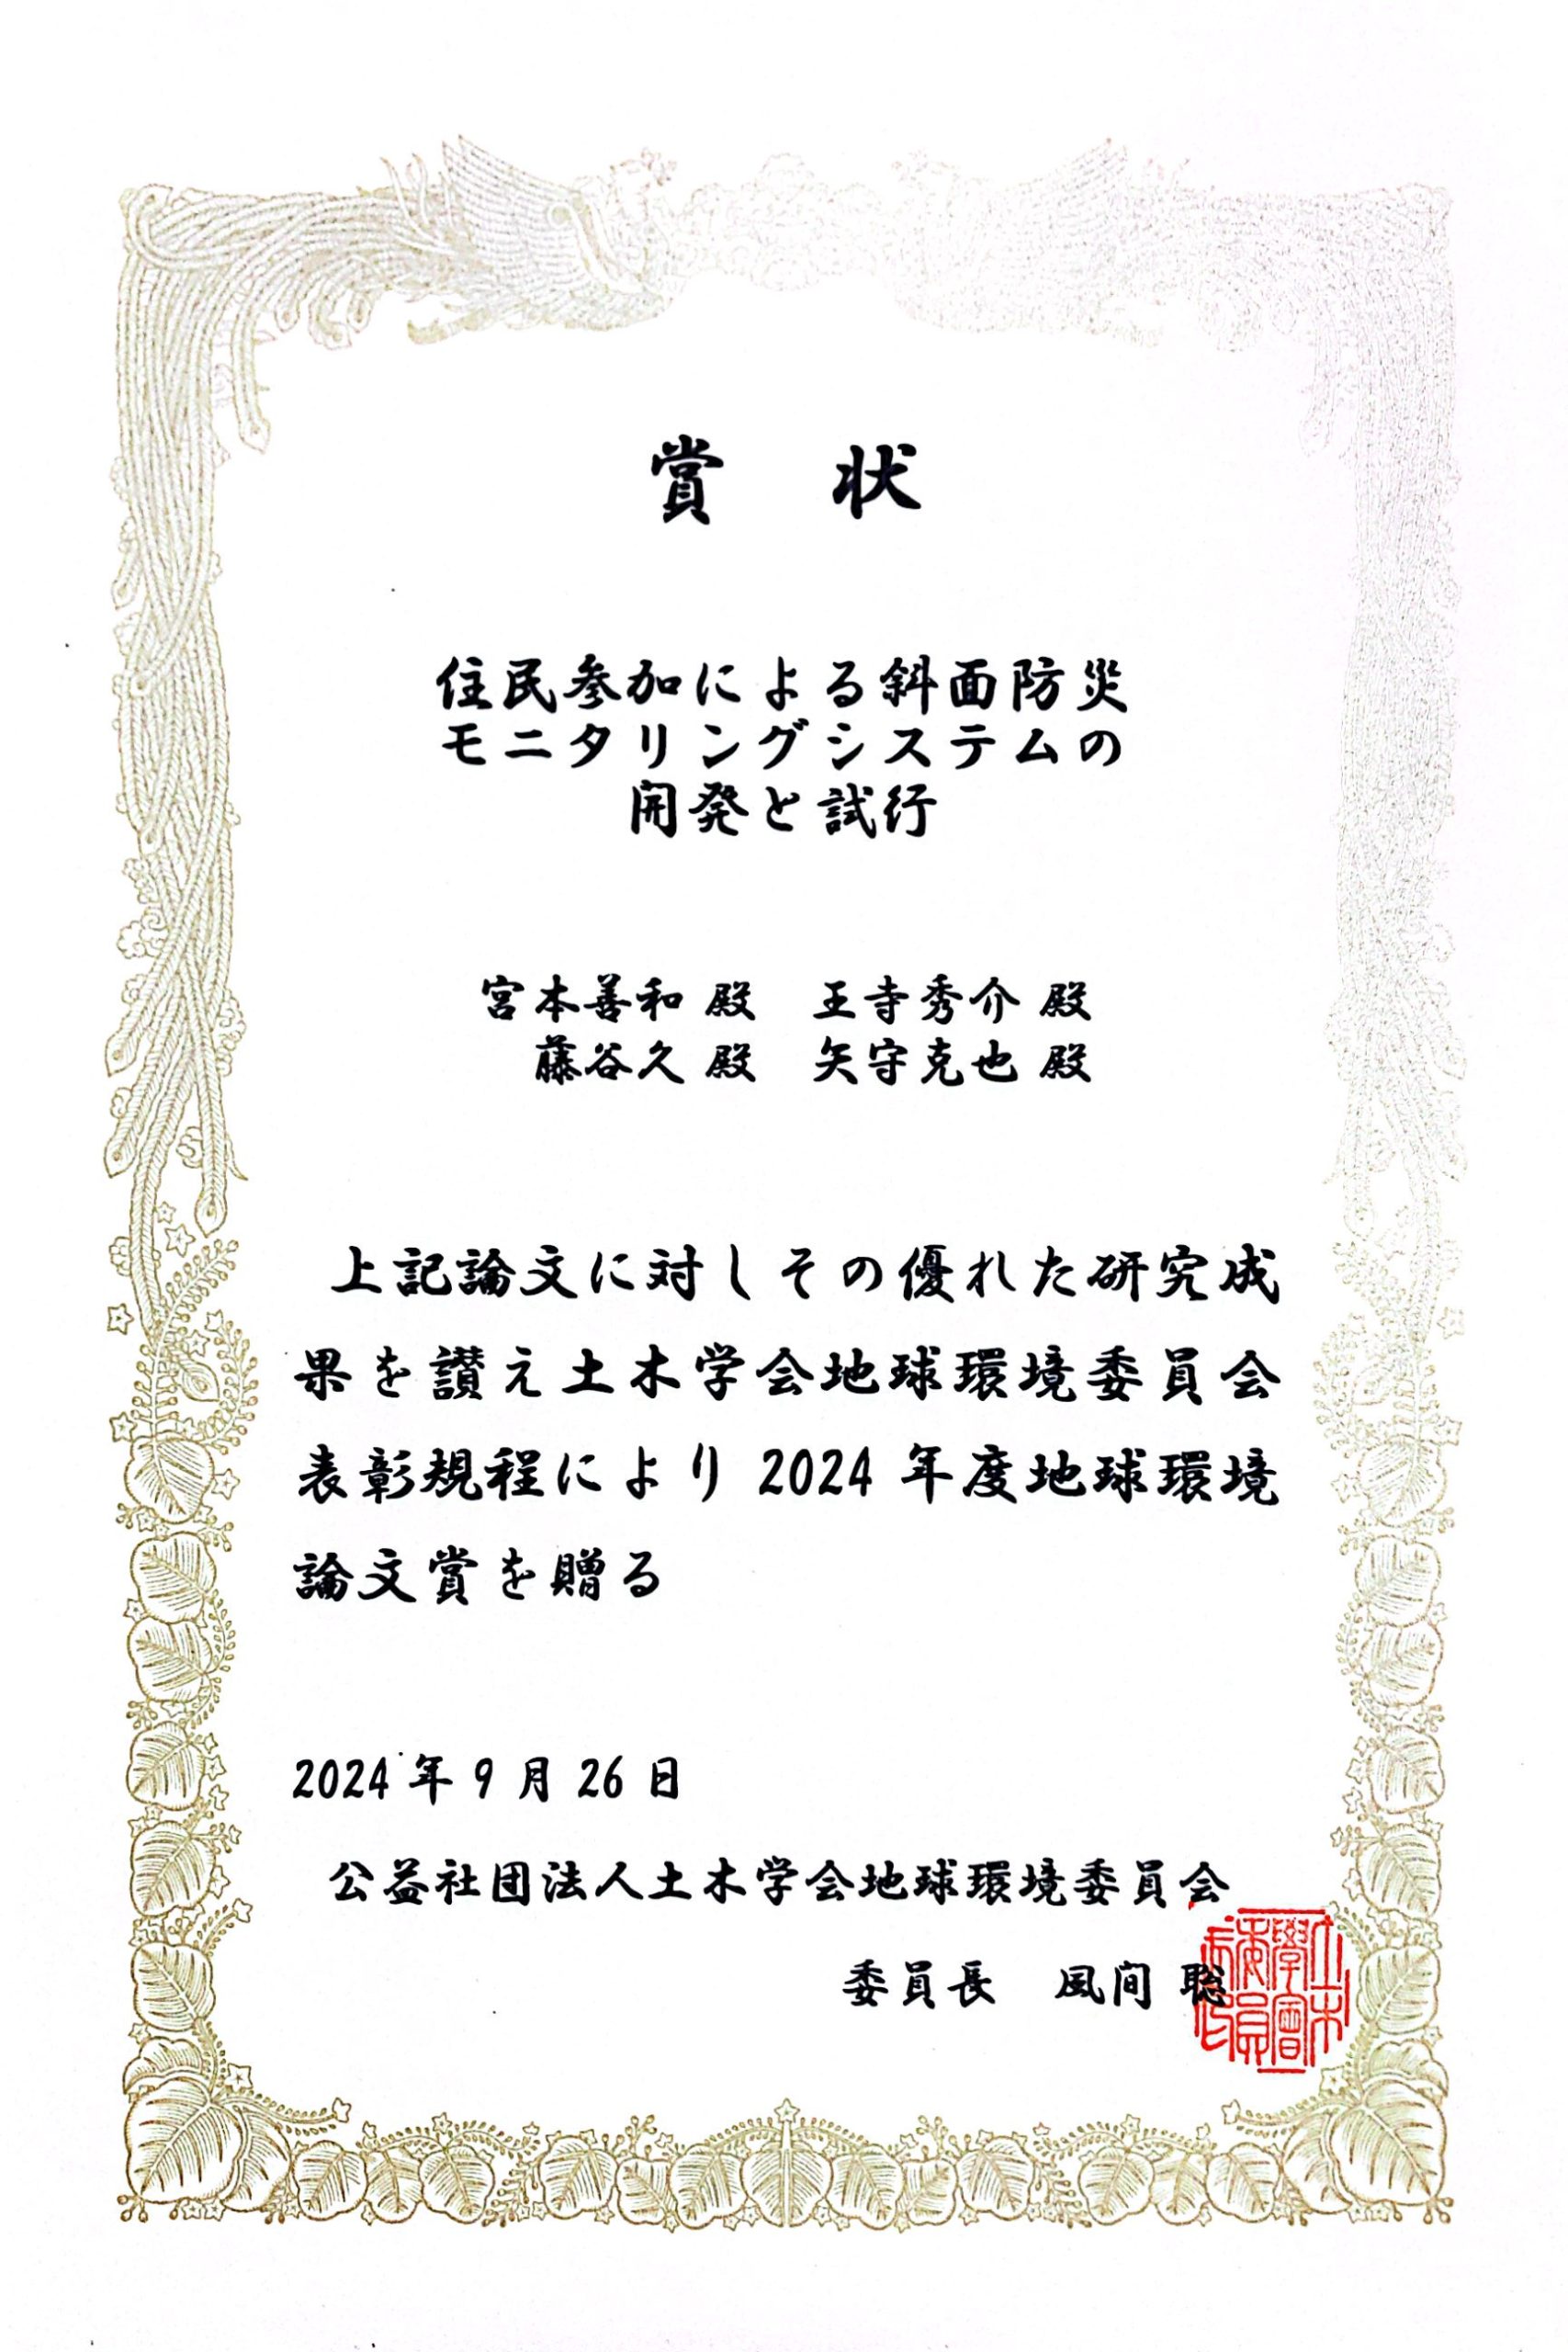 賞　状
住民参加による斜面防災
モニタリングシステムの
開発と試行
宮本善和 殿　王寺秀介 殿
藤谷久 殿　矢守克也 殿
上記論文に対しその優れた研究成
果を讃え土木学会地球環境委員会
表彰規程により 2024 年度地球環境
論文賞を贈る
2024 年 9 月 26 日
公益社団法人土木学会地球環境委員会
委員長　風間 聡
土木
學會
委員
長印